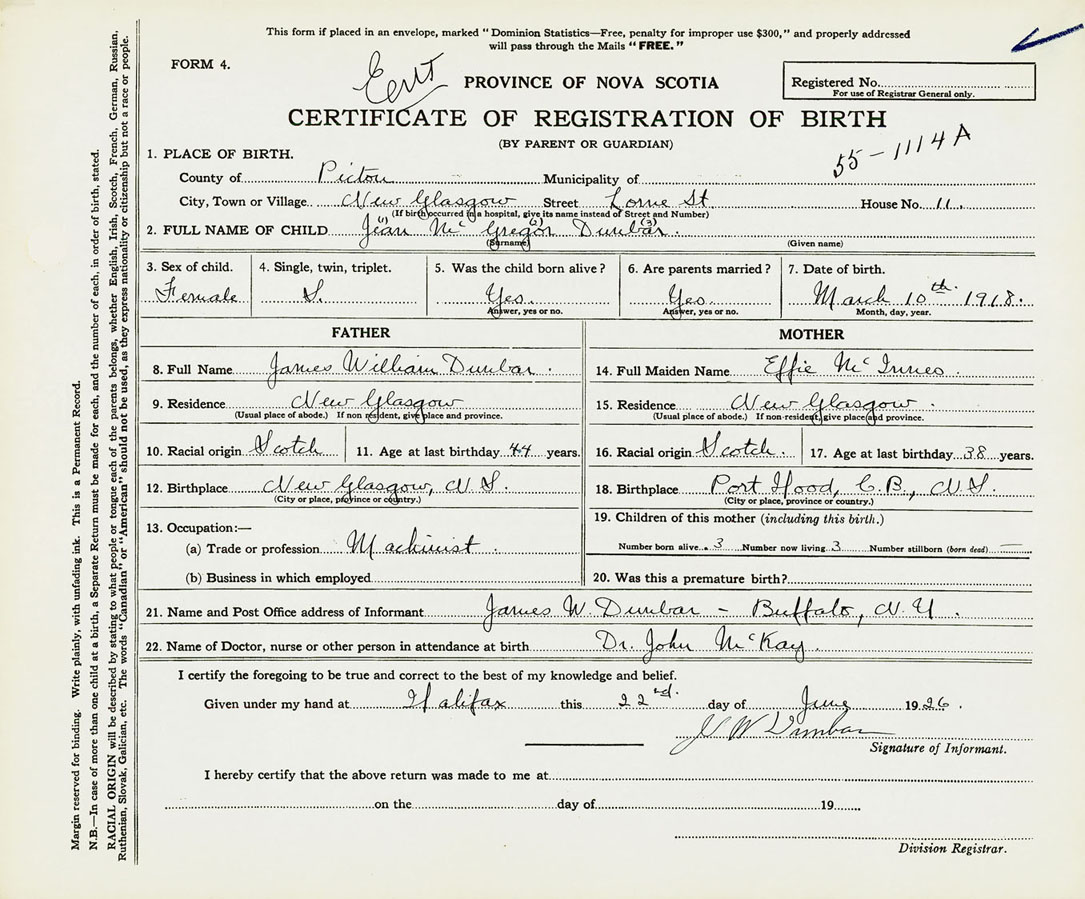 This form if placed in an envelope, marked "Dominion Statistics—Free, penalty for improper use $300," and properly addressed
will pass through the Mails "FREE."
FORM 4.
Cert
PROVINCE OF NOVA SCOTIA
Registered No.
For use of Registrar General only.
CERTIFICATE OF REGISTRATION OF BIRTH
(BY PARENT OR GUARDIAN)
55-1114A
1. PLACE OF BIRTH.
County of Pictou Municipality of
City, Town or Village New Glasgow Street Lorne St House No. 11
(If birth occurred in a hospital, give its name instead of Street and Number)
(1) (2) (3)
2. FULL NAME OF CHILD Jean McGregor Dunbar.
(Surname) (Given name)
3. Sex of child. 4. Single, twin, triplet. 5. Was the child born alive? 6. Are parents married? 7. Date of birth.
Female S. Yes. Yes. March 10th 1918.
Answer, yes or no. Answer, yes or no. Month, day, year.
FATHER MOTHER
8. Full Name James William Dunbar. 14. Full Maiden Name Effie McInnes.
9. Residence New Glasgow 15. Residence New Glasgow.
(Usual place of abode.) If non resident, give place and province. (Usual place of abode.) If non-resident, give place and province.
10. Racial origin Scotch 11. Age at last birthday 44 years. 16. Racial origin Scotch. 17. Age at last birthday 38 years.
12. Birthplace New Glasgow, N.S. 18. Birthplace Port Hood, C.B., N.S.
(City or place, province or country.) (City or place, province or country.)
13. Occupation:— 19. Children of this mother (including this birth.)
(a) Trade or profession Machinist. Number born alive 3 Number now living 3 Number stillborn (born dead) —
(b) Business in which employed 20. Was this a premature birth?
21. Name and Post Office address of Informant James W. Dunbar - Buffalo, N.Y.
22. Name of Doctor, nurse or other person in attendance at birth Dr. John McKay.
I certify the foregoing to be true and correct to the best of my knowledge and belief.
Given under my hand at Halifax this 22nd. day of June 1926.
J W Dunbar
Signature of Informant.
I hereby certify that the above return was made to me at
on the day of 19
Division Registrar.
Margin reserved for binding. Write plainly, with unfading ink. This is a Permanent Record.
N.B.—In case of more than one child at a birth, a Separate Return must be made for each, and the number of each, in order of birth, stated.
RACIAL ORIGIN will be described by stating to what people or tongue each of the parents belongs, whether English, Irish, Scotch, French, German, Russian,
Ruthenian, Slovak, Galician, etc. The words "Canadian" or "American" should not be used, as they express nationality or citizenship but not a race or people.